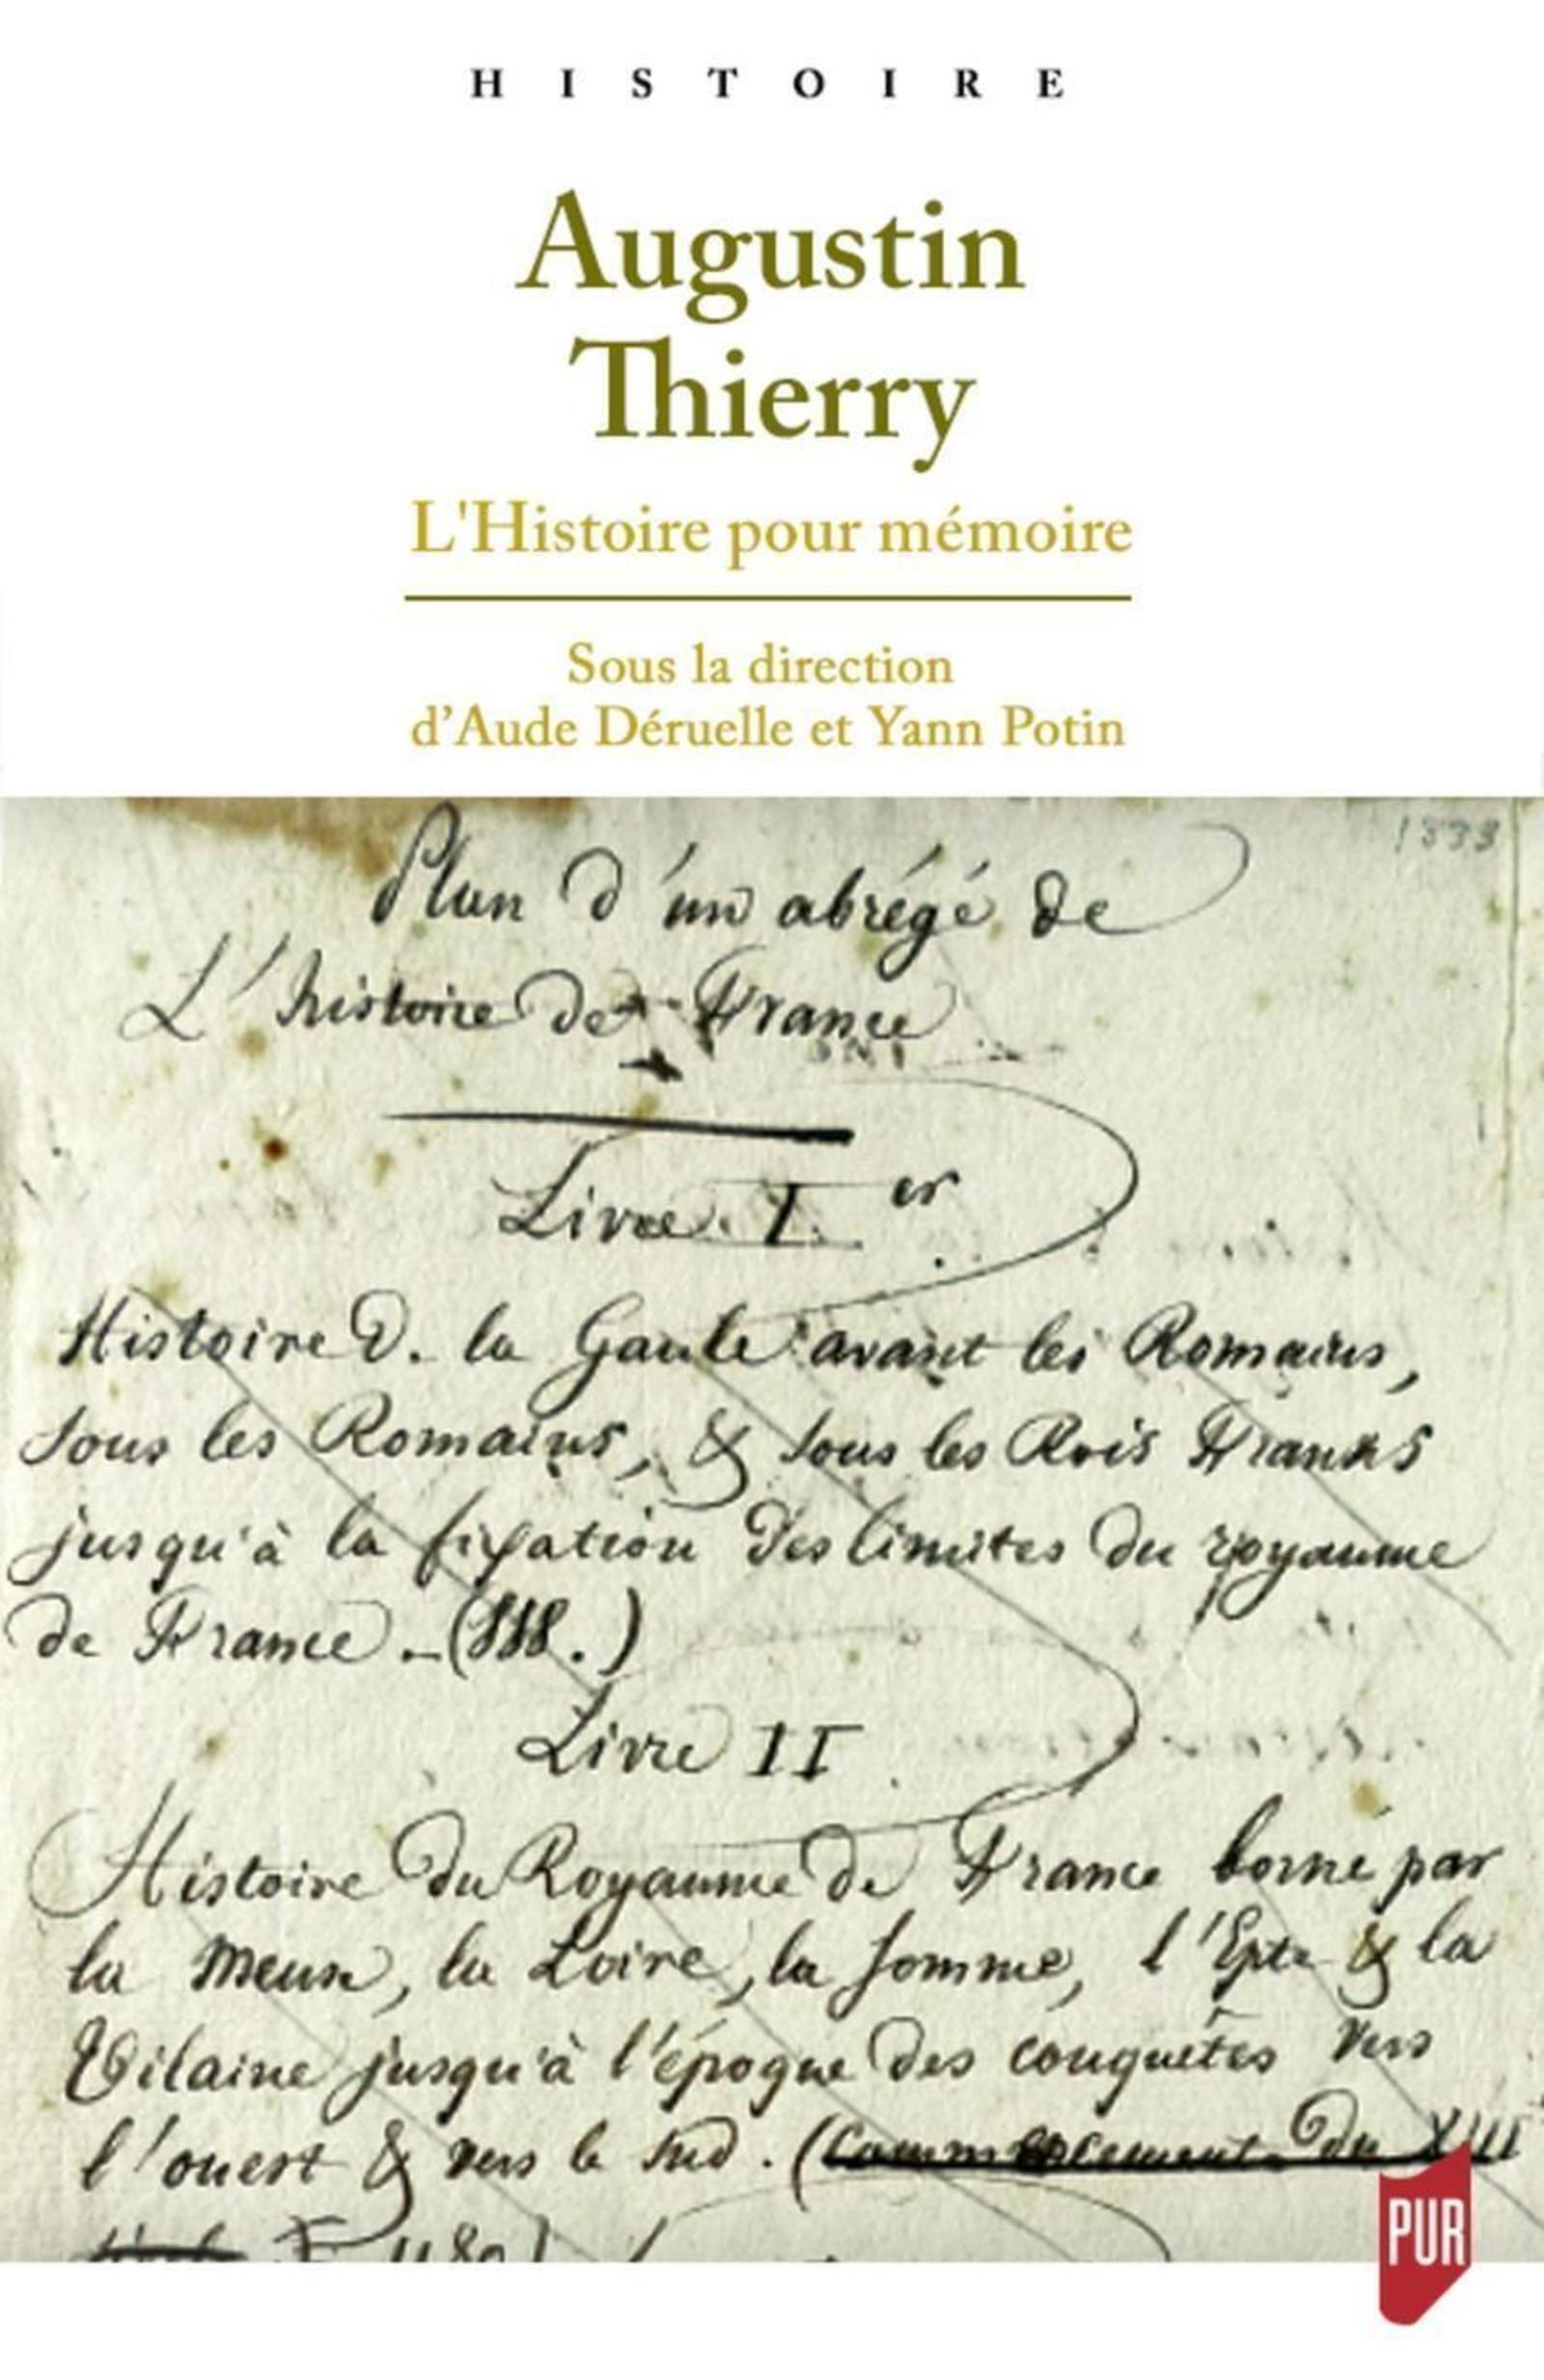 HISTOIRE
Augustin
Thierry
L'Histoire pour mémoire
Sous la direction
d'Aude Déruelle et Yann Potin
Plan d'un abrégé de
L'histoire de France
Livre I.er
Histoire d. la Gaule avant les Romains,
sous les Romains, & sous les Rois Franks
jusqu'à la fixation des limites du royaume
de France. - (888.)
Livre II
Histoire du Royaume de France borné par
la Meuse, la Loire, la Somme, l'Epte & la
Vilaine jusqu'à l'époque des conquêtes vers
l'ouest & vers le sud. (Commencement du XIII
PUR